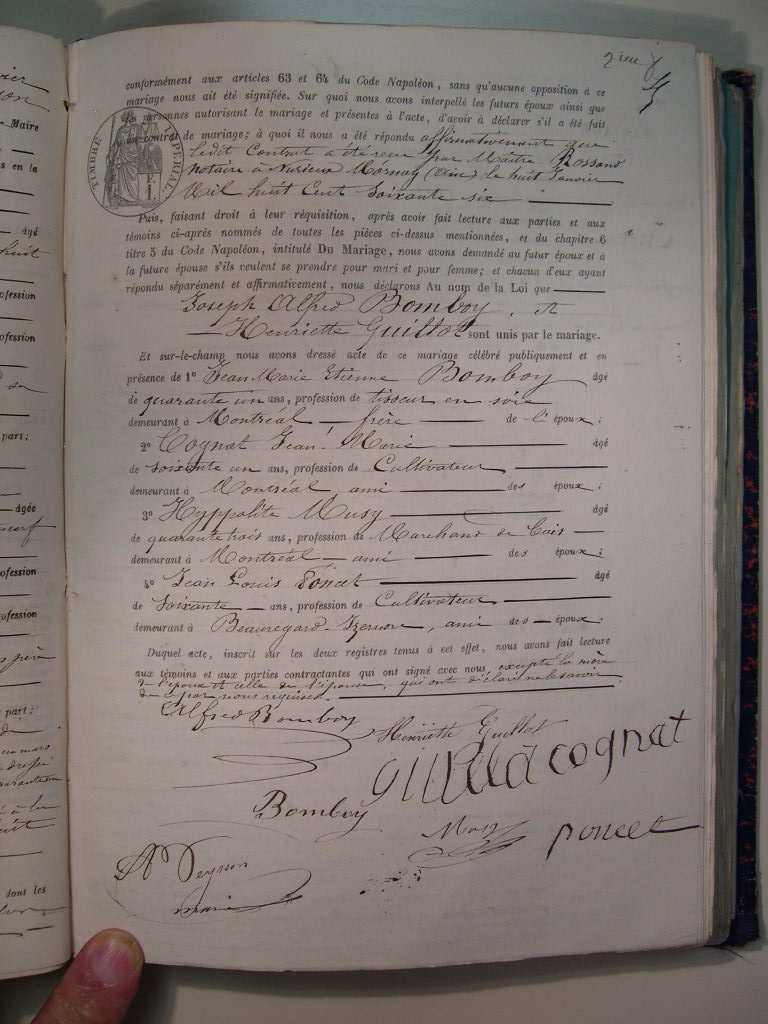 2ième f
conformément aux articles 63 et 64 du Code Napoléon, sans qu'aucune opposition à ce
mariage nous ait été signifiée. Sur quoi nous avons interpellé les futurs époux ainsi que
les personnes autorisant le mariage et présentes à l'acte, d'avoir à déclarer s'il a été fait
un contrat de mariage; à quoi il nous a été répondu affirmativement que
ledit Contrat a été reçu par Maître Rossand
notaire à Nurieux Mornay (Ain) le huit Janvier
Mil huit Cent Soixante six
TIMBRE IMPERIAL
Puis, faisant droit à leur réquisition, après avoir fait lecture aux parties et aux
témoins ci-après nommés de toutes les pièces ci-dessus mentionnées, et du chapitre 6
titre 5 du Code Napoléon, intitulé Du Mariage, nous avons demandé au futur époux et à
la future épouse s'ils veulent se prendre pour mari et pour femme; et chacun d'eux ayant
répondu séparément et affirmativement, nous déclarons Au nom de la Loi que
Joseph Alfred Bomboy, et
Henriette Guillot sont unis par le mariage.
Et sur-le-champ nous avons dressé acte de ce mariage célébré publiquement et en
présence de 1° Jean Marie Etienne Bomboy âgé
de quarante un ans, profession de tisseur en soie
demeurant à Montréal frère de l'époux;
2° Cognat Jean Marie âgé
de soixante un ans, profession de Cultivateur
demeurant à Montréal ami des époux;
3° Hyppolite Musy âgé
de quarante trois ans, profession de Marchand de bois
demeurant à Montréal ami des époux;
4° Jean Louis Poncet âgé
de soixante ans, profession de Cultivateur
demeurant à Beauregard Izernore, ami des époux;
Duquel acte, inscrit sur les deux registres tenus à cet effet, nous avons fait lecture
aux témoins et aux parties contractantes qui ont signé avec nous, excepté la mère
de l'époux et celle de l'épouse, qui ont déclaré ne le savoir
de ce par nous requises.
Alfred Bomboy
Henriette Guillot
cognat
Bomboy
Musy
poncet
Peysson
maire